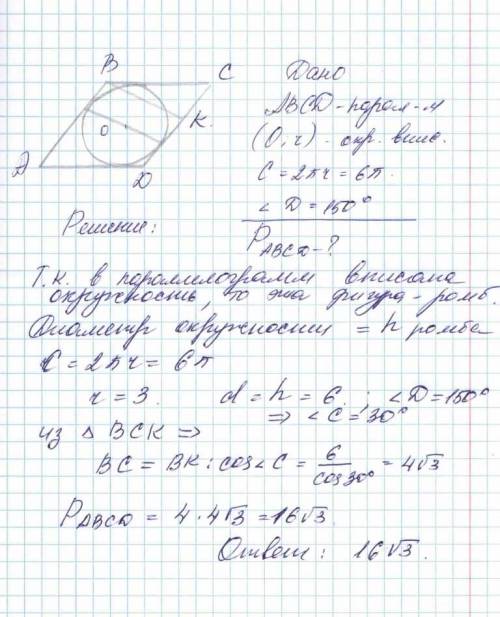 B
C
K.
O
A
D
Дано
ABCD - парал-м
(O, r) - окр. впис.
C = 2πr = 6π.
∠D = 150°
P ABCD - ?
Решение:
Т.к. в параллелограмм вписана
окружность, то эта фигура - ромб.
Диаметр окружности = h ромба
C = 2πr = 6π
r = 3. d = h = 6. ; ∠D = 150°
⇒ ∠C = 30°
из △ BCK ⇒
BC = BK : cos∠C = 6/cos30° = 4√3
P ABCD = 4 · 4√3 = 16√3.
Ответ: 16√3.